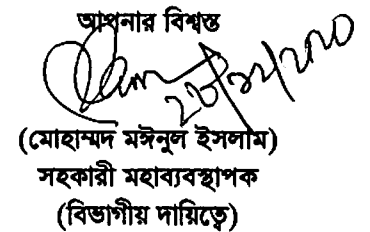 আপনার বিশ্বস্ত
(মোহাম্মদ মঈনুল ইসলাম)
সহকারী মহাব্যবস্থাপক
(বিভাগীয় দায়িত্বে)